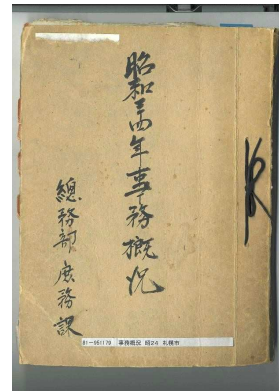 昭和二四年事務概況
總務部庶務課
81-951179 事務概況 昭24 札幌市